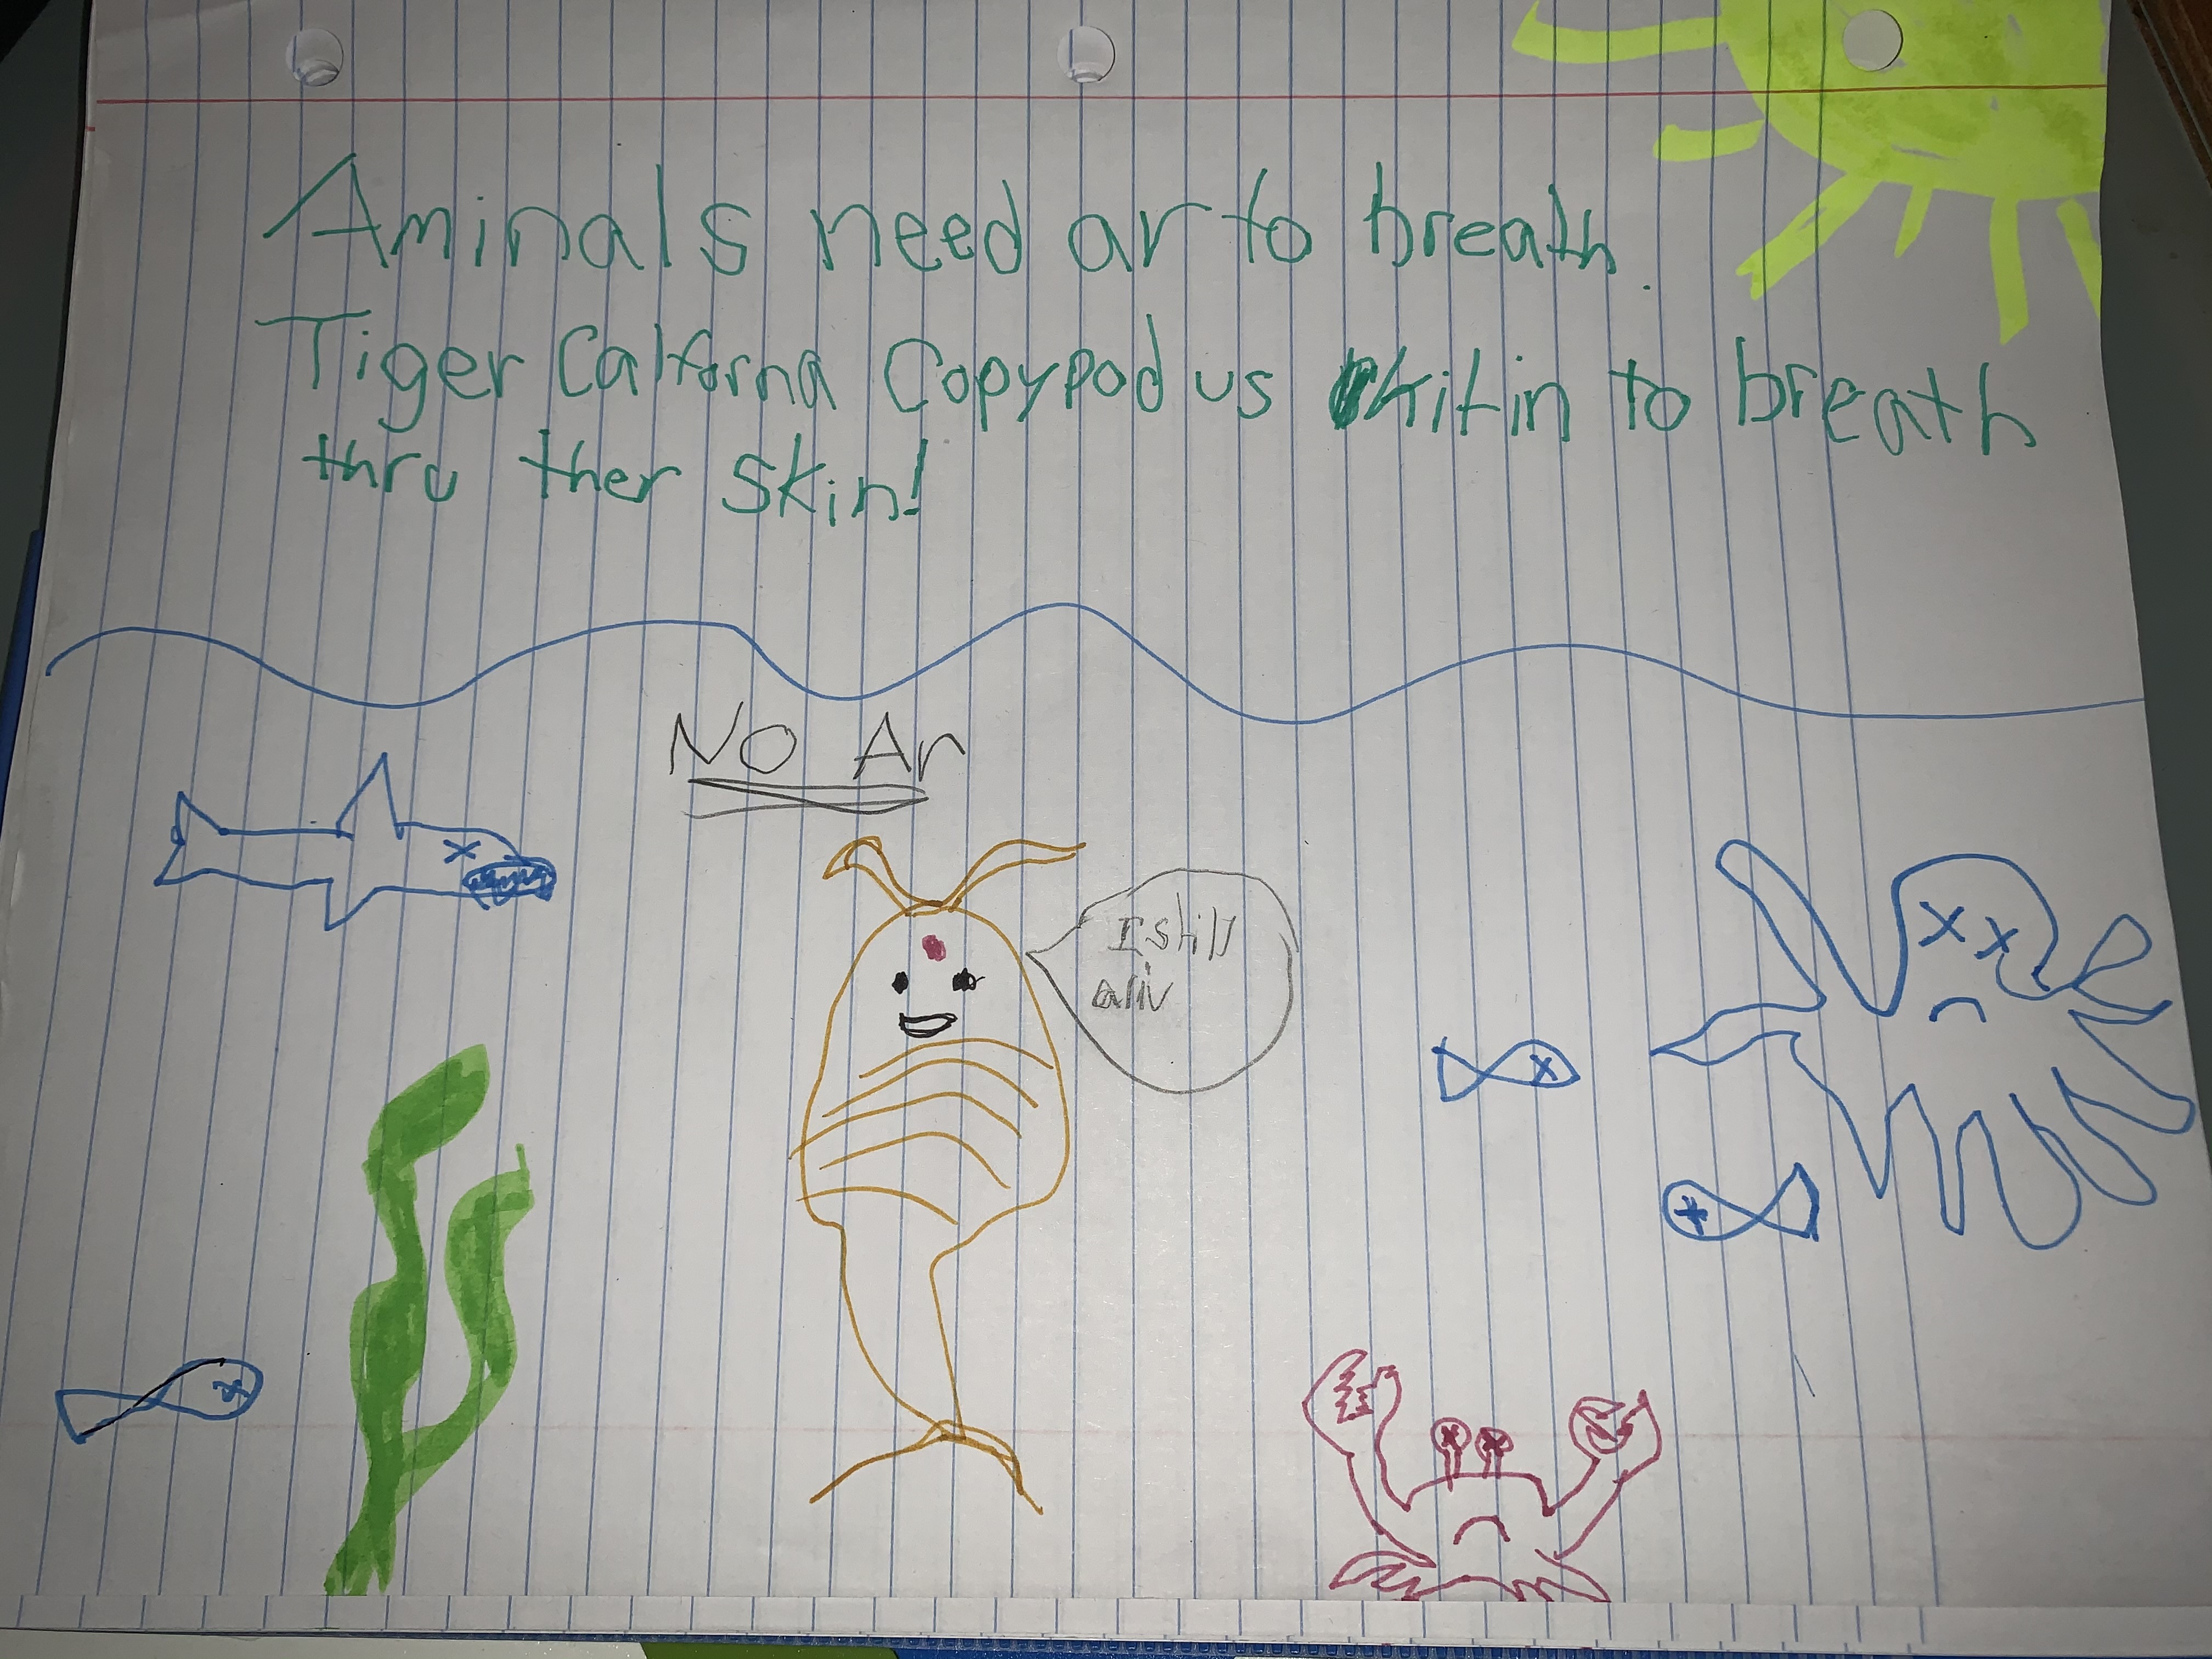 Aminals need ar to breath.
Tiger Calforna Copypod us kitin to breath
thru ther skin!
NO Ar
I still
aliv